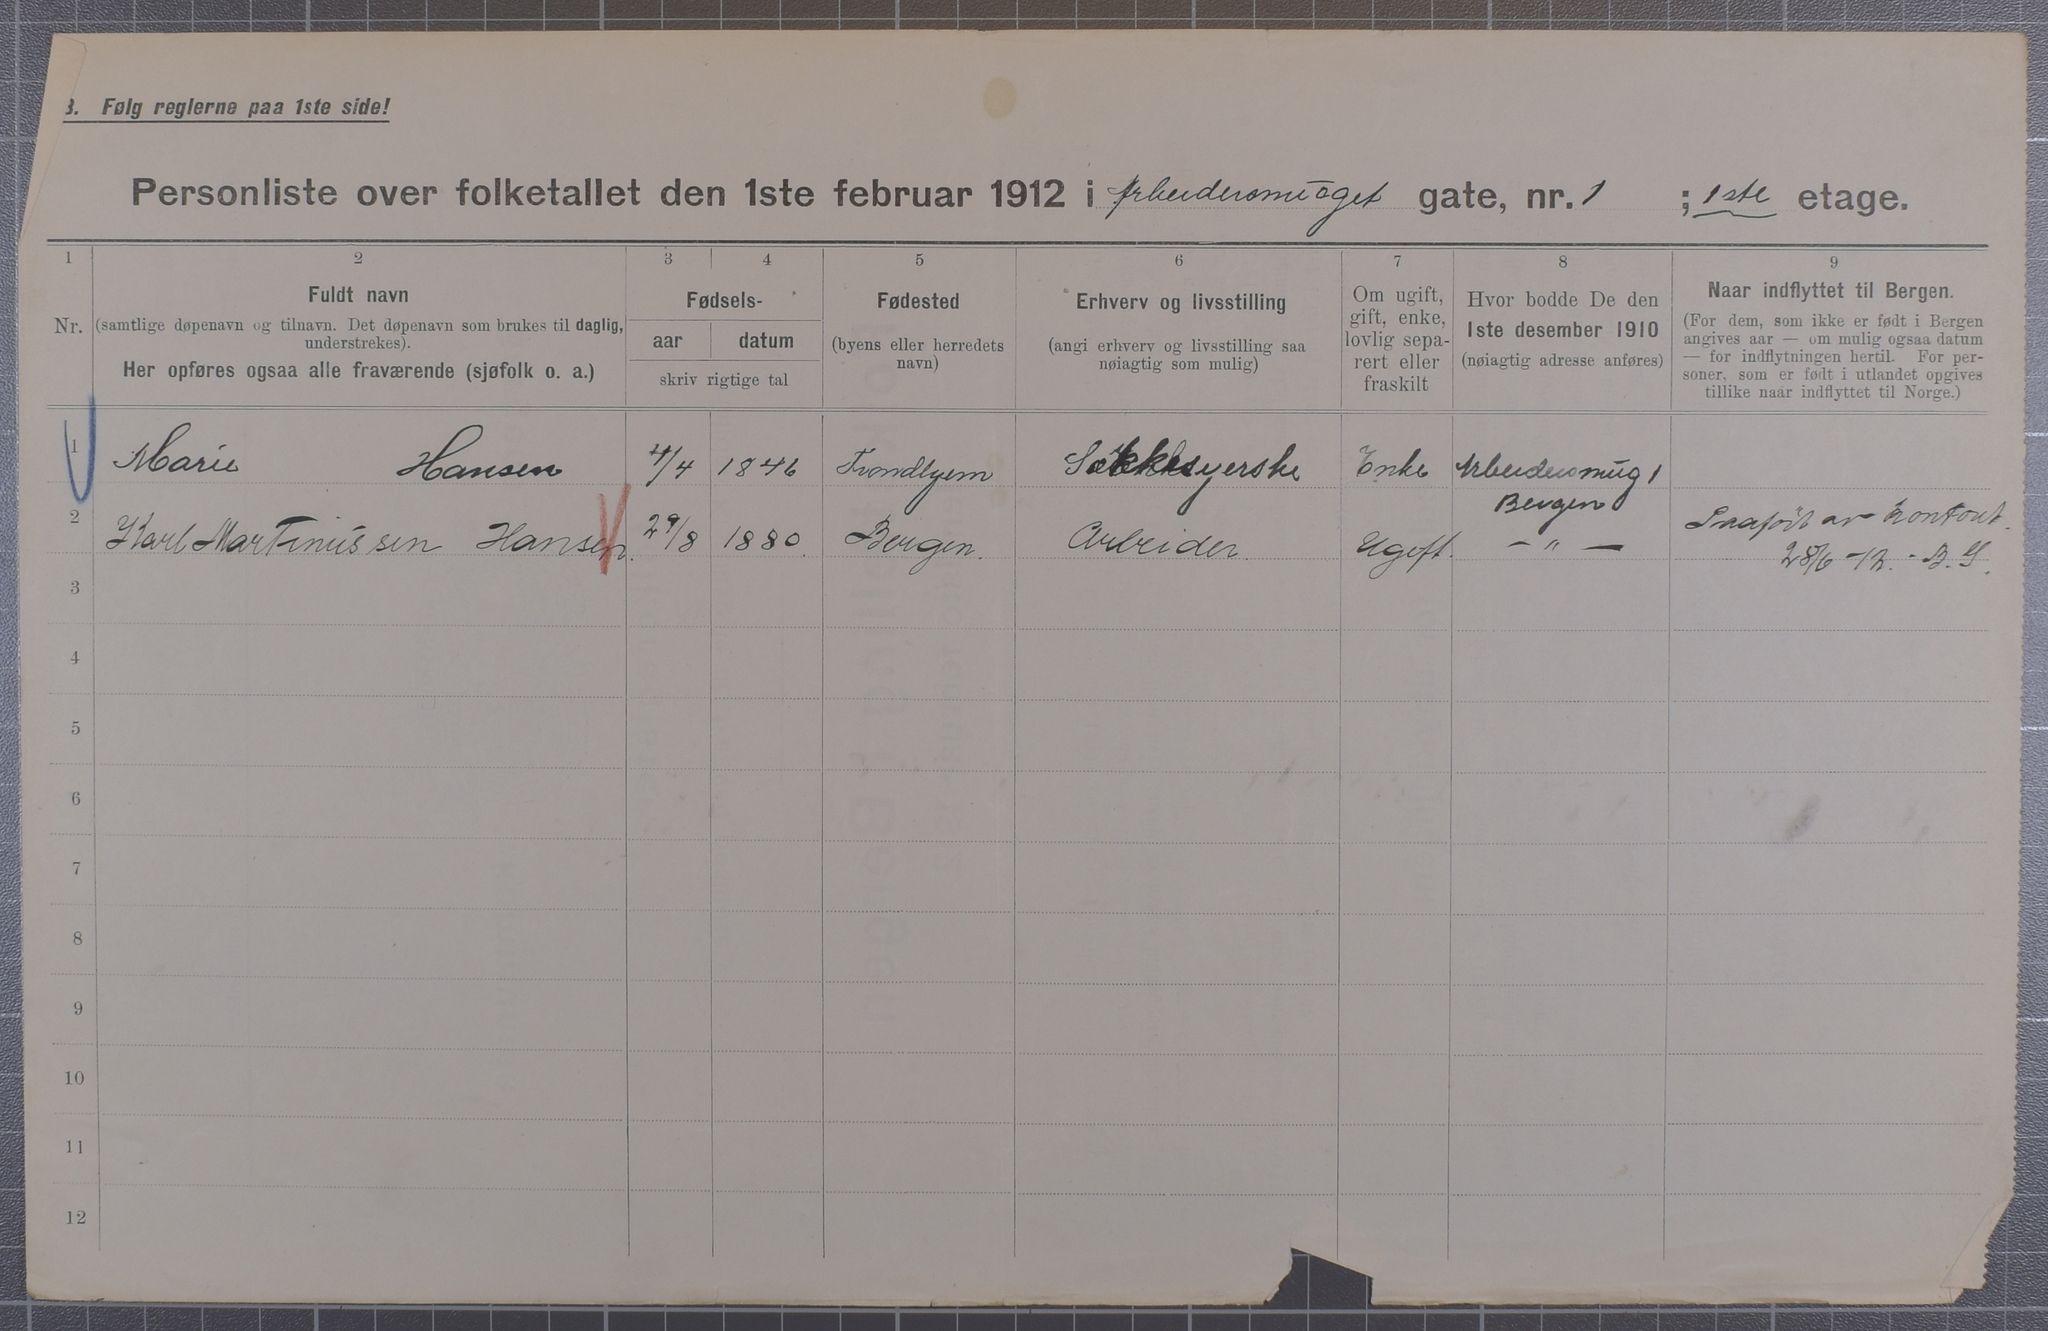 B. Følg reglerne paa 1ste side!
Personliste over folketallet den 1ste februar 1912 i Arbeidersmuget gate, nr. 1 ; 1ste etage.
1 2 3 4 5 6 7 8 9
Nr.
Fuldt navn
(samtlige døpenavn og tilnavn. Det døpenavn som brukes til daglig,
understrekes).
Her opføres ogsaa alle fraværende (sjøfolk o. a.)
Fødsels-
aar datum
skriv rigtige tal
Fødested
(byens eller herredets
navn)
Erhverv og livsstilling
(angi erhverv og livsstilling saa
nøiagtig som mulig)
Om ugift,
gift, enke,
lovlig sepa-
rert eller
fraskilt
Hvor bodde De den
1ste desember 1910
(nøiagtig adresse anføres)
Naar indflyttet til Bergen.
(For dem, som ikke er født i Bergen
angives aar — om mulig ogsaa datum
— for indflytningen hertil. For per-
soner, som er født i utlandet opgives
tillike naar indflyttet til Norge.)
1 Marie Hansen 4/4 1846 Trondhjem Sækkesyerske Enke Arbeidersmug 1
Bergen
2 Karl Martinussen Hansen. 29/8 1880. Bergen. Arbeider. Ugift. — " — Paaført av kontoret.
28/6 -12. - B. S.
3
4
5
6
7
8
9
10
11
12